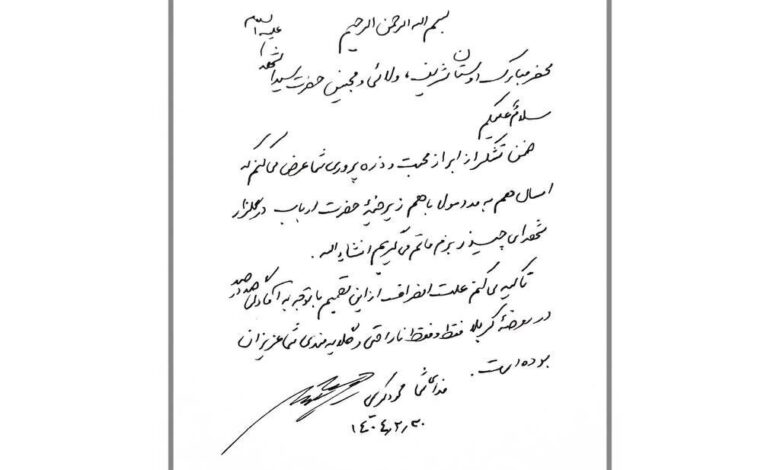 بسم الله الرحمن الرحیم
محضر مبارک دوستان شریف، ولائی و محبین حضرت سیدالشهداء علیه السلام
سلام علیکم
ضمن تشکر از ابراز محبت و ذره پروری شما عرض می‌کنم که
امسال هم به مدد مولا با هم زیر خیمهٔ حضرت ارباب در گلزار
شهدای چیذر بزم ماتم می‌گیریم انشاءالله.
تاکید می‌کنم علت انصراف از این تصمیم با توجه به آمادگی صددرصد
در روضهٔ کربلا فقط و فقط ناراحتی و گلایه‌مندی شما عزیزان
بوده است.
فدای شما محمود کریمی
۱۴۰۴٫۳٫۳۰